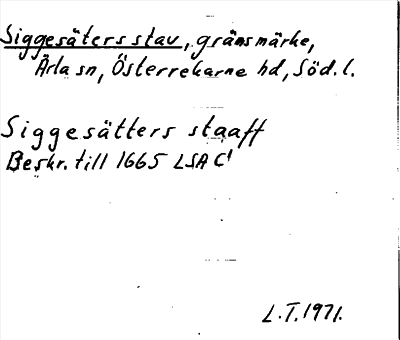 Siggesäters stav, gränsmärke,
Ärla sn, Österrekarne hd, Söd. l.
Siggesätters staaff
Beskr. till 1665 LSA C1
L.T. 1971.